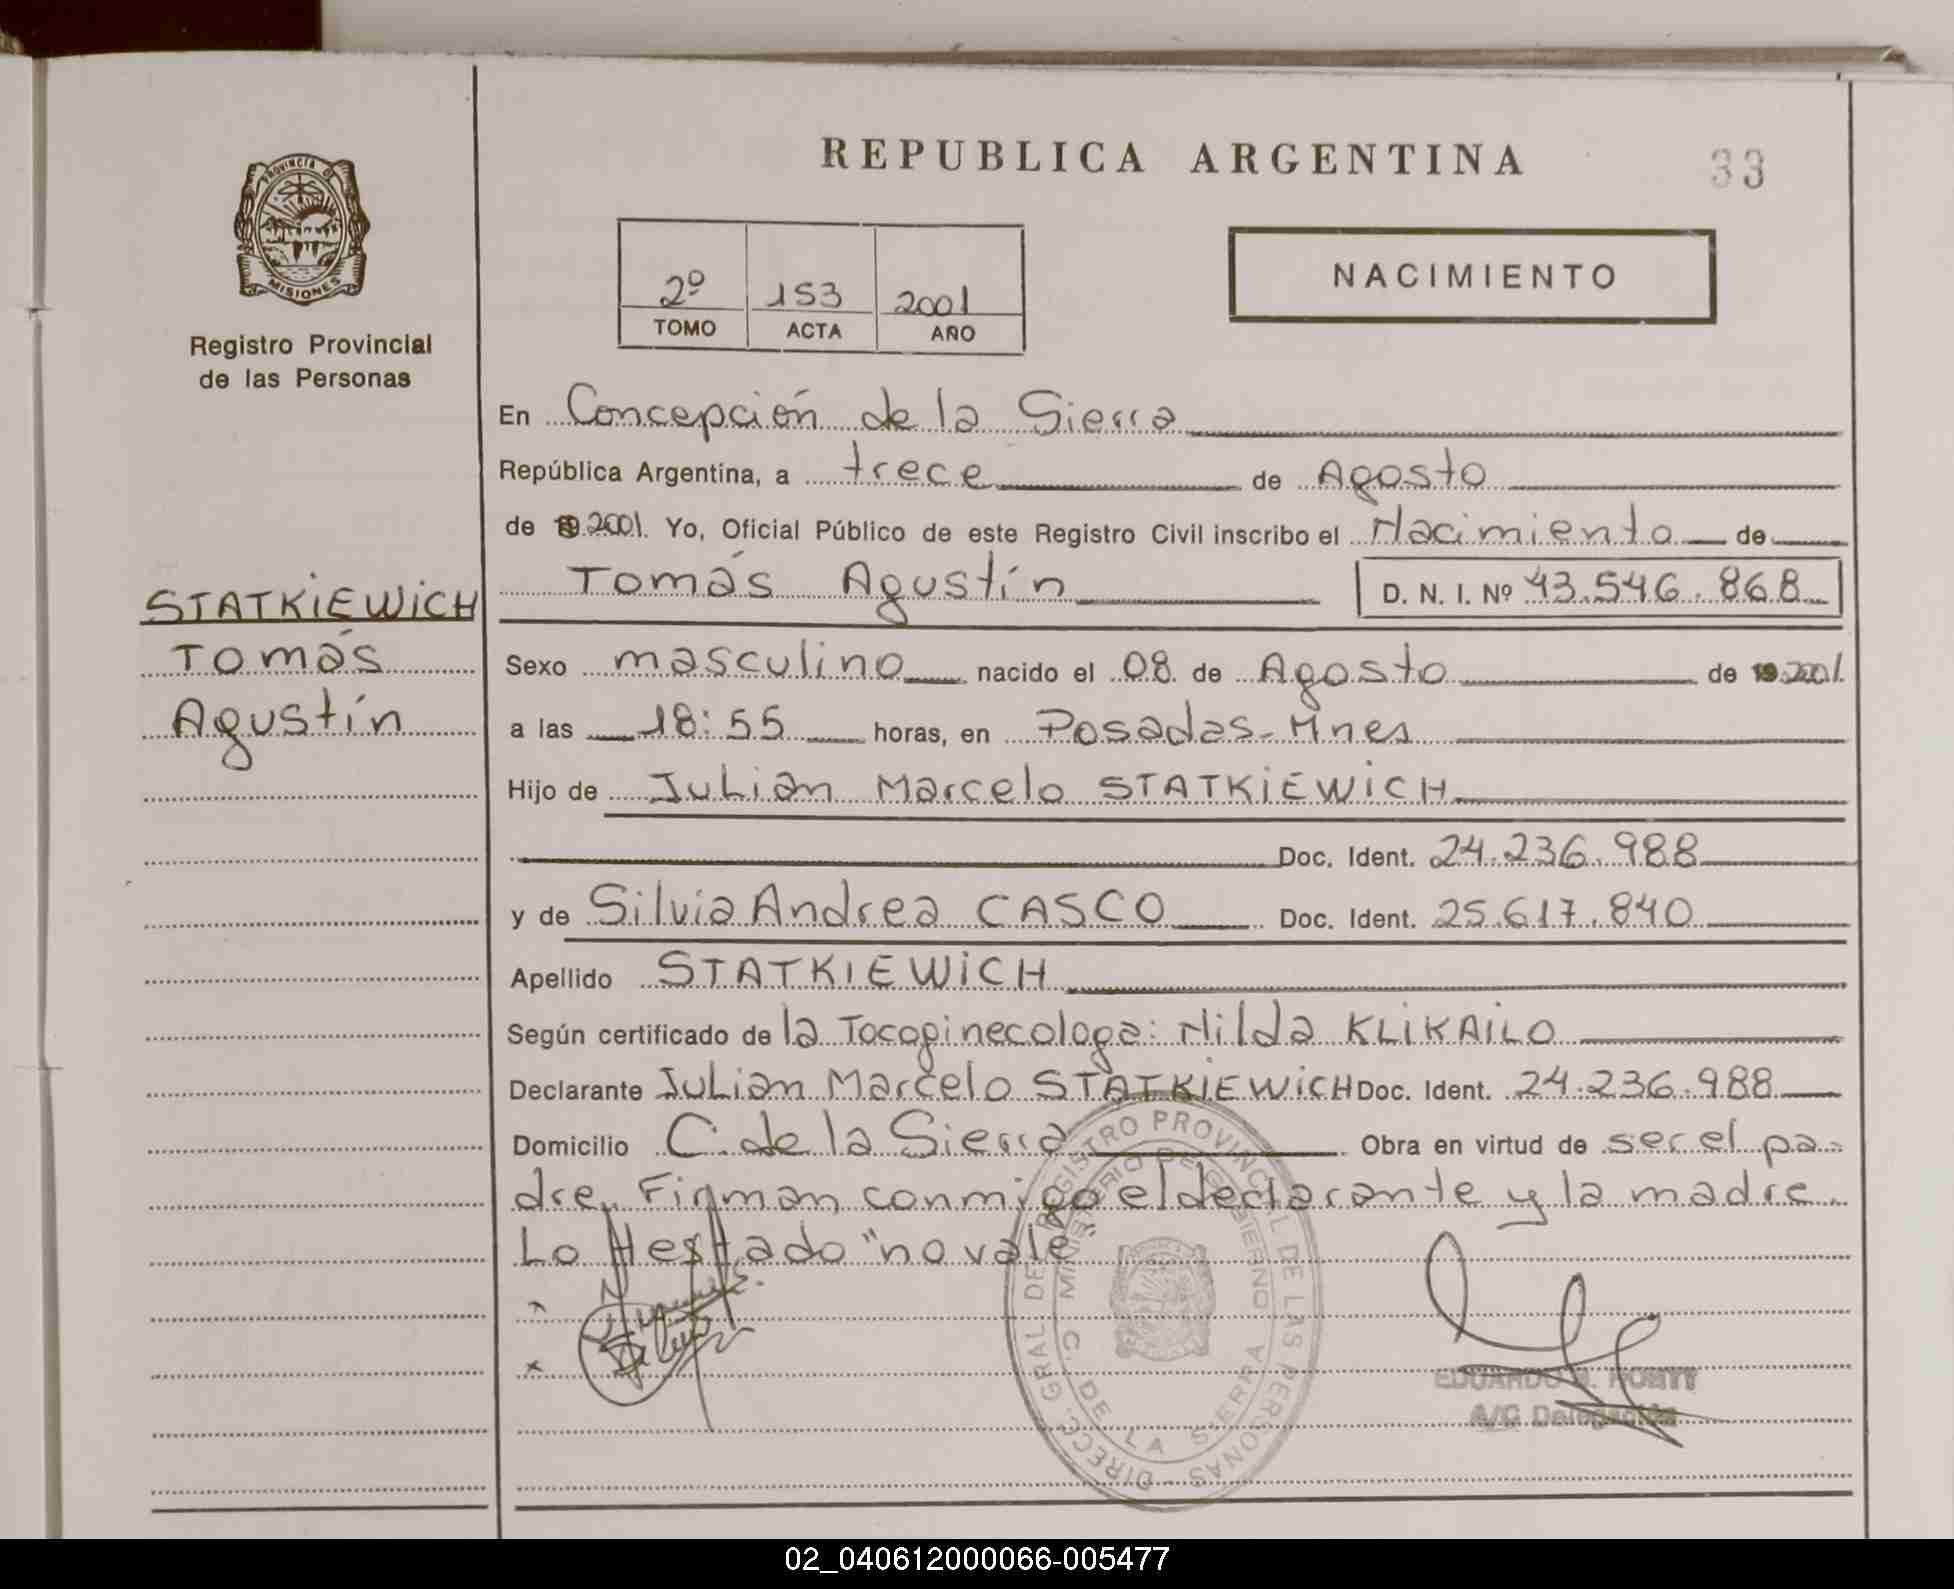 REPUBLICA ARGENTINA
33
PROVINCIA D
MISIONES
Registro Provincial
de las Personas
2º 153 2001
TOMO ACTA AÑO
NACIMIENTO
En Concepción de la Sierra
República Argentina, a trece de Agosto
de 19 2001. Yo, Oficial Público de este Registro Civil inscribo el Nacimiento de
Tomás Agustín D. N. I. Nº 43.546.868
STATKiEWiCH
Tomás
Agustín
Sexo masculino nacido el 08 de Agosto de 19 2001.
a las 18:55 horas, en Posadas - Mnes
Hijo de Julián Marcelo STATKiEWiCH
Doc. Ident. 24.236.988
y de Silvia Andrea CASCO Doc. Ident. 25.617.840
Apellido STATKIEWiCH
Según certificado de la Tocoginecologa: Nilda KLiKAiLO
Declarante Julian Marcelo STATKIEWiCH Doc. Ident. 24.236.988
Domicilio C. de la Sierra Obra en virtud de ser el pa-
dre, Firman conmigo el declarante y la madre.
Lo testado "no vale"
DIRECC. GRAL DE REGISTRO PROVINCIAL DE LAS PERSONAS
MINISTERIO DE GOBIERNO
C. DE LA SIERRA
EDUARDO
A/C Delegación
02_040612000066-005477